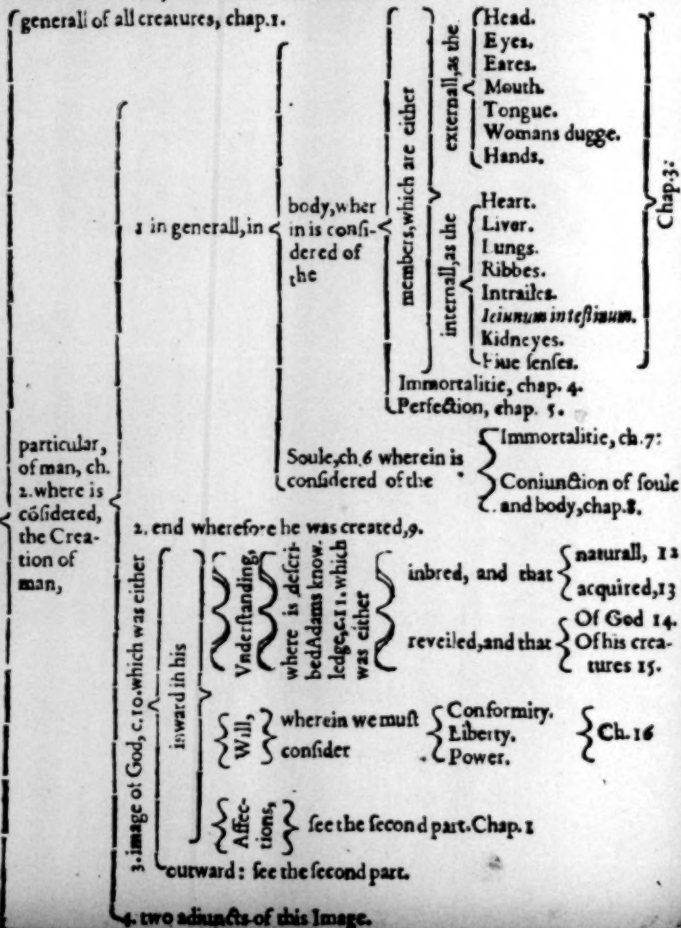 generall of all creatures, chap.1.
particular,
of man, ch.
2.where is
cõſidered,
the Crea-
tion of
man,
1 in generall, in
body, wher
in is conſi-
dered of
the
members, which are either
externall, as the
Head.
Eyes.
Eares.
Mouth.
Tongue.
Womans dugge.
Hands.
internall, as the
Heart.
Liver.
Lungs.
Ribbes.
Intrailes.
Ieiunum inteſtinum.
Kidneyes.
Fiue ſenſes.
Chap.3:
Immortalitie, chap. 4.
Perfection, chap. 5.
Soule, ch.6 wherein is
conſidered of the
Immortalitie, ch.7:
Coniunction of ſoule
and body, chap.8.
2. end wherefore he was created, 9.
3. image of God, c.10. which was either
inward in his
Vnderſtanding,
where is deſcri-
bed Adams know-
ledge, c.11. which
was either
inbred, and that
naturall, 12
acquired, 13
reveiled, and that
Of God 14.
Of his crea-
tures 15.
Will,
wherein we muſt
conſider
Conformity.
Liberty.
Power.
Ch. 16
Affec-
tions,
ſee the ſecond part. Chap. 1
outward: ſee the ſecond part.
4. two adiuncts of this Image.